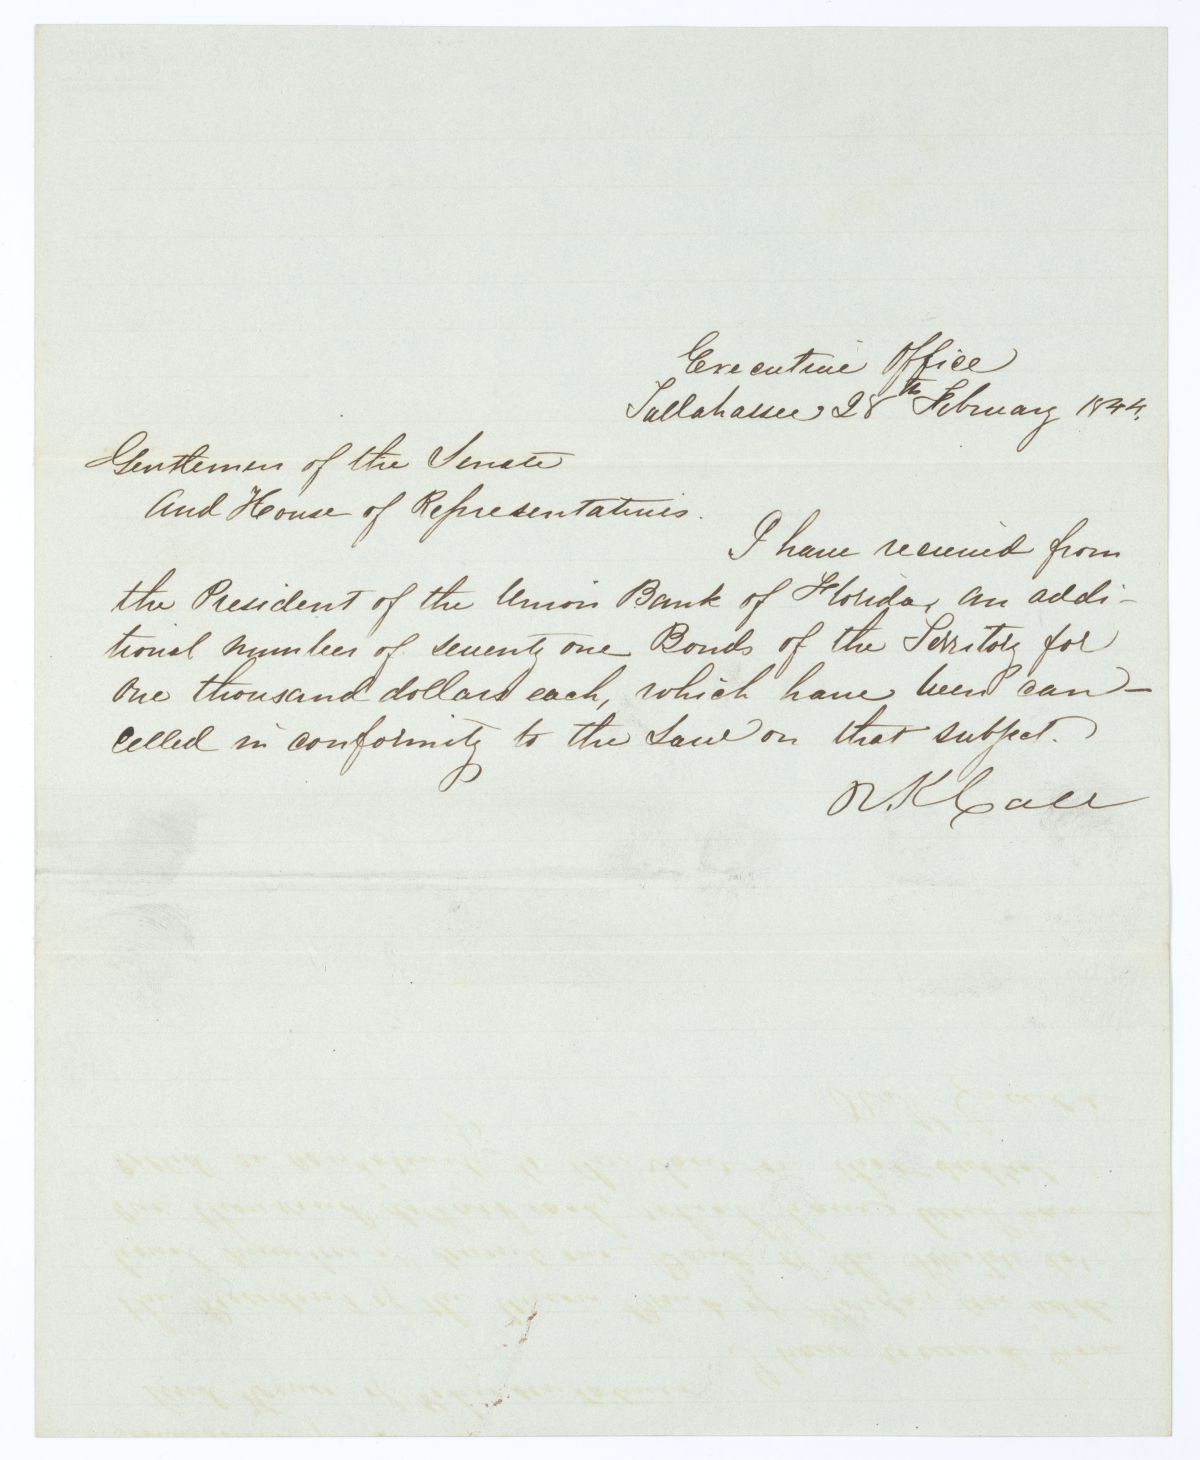 Executive Office
Tallahassee 28th February 1844.
Gentlemen of the Senate
And House of Representatives.
I have received from
the President of the Union Bank of Florida, an addi-
tional number of seventy one Bonds of the Territory for
One thousand dollars each, which have been can-
celled in conformity to the Law on that subject.
R. K. Call